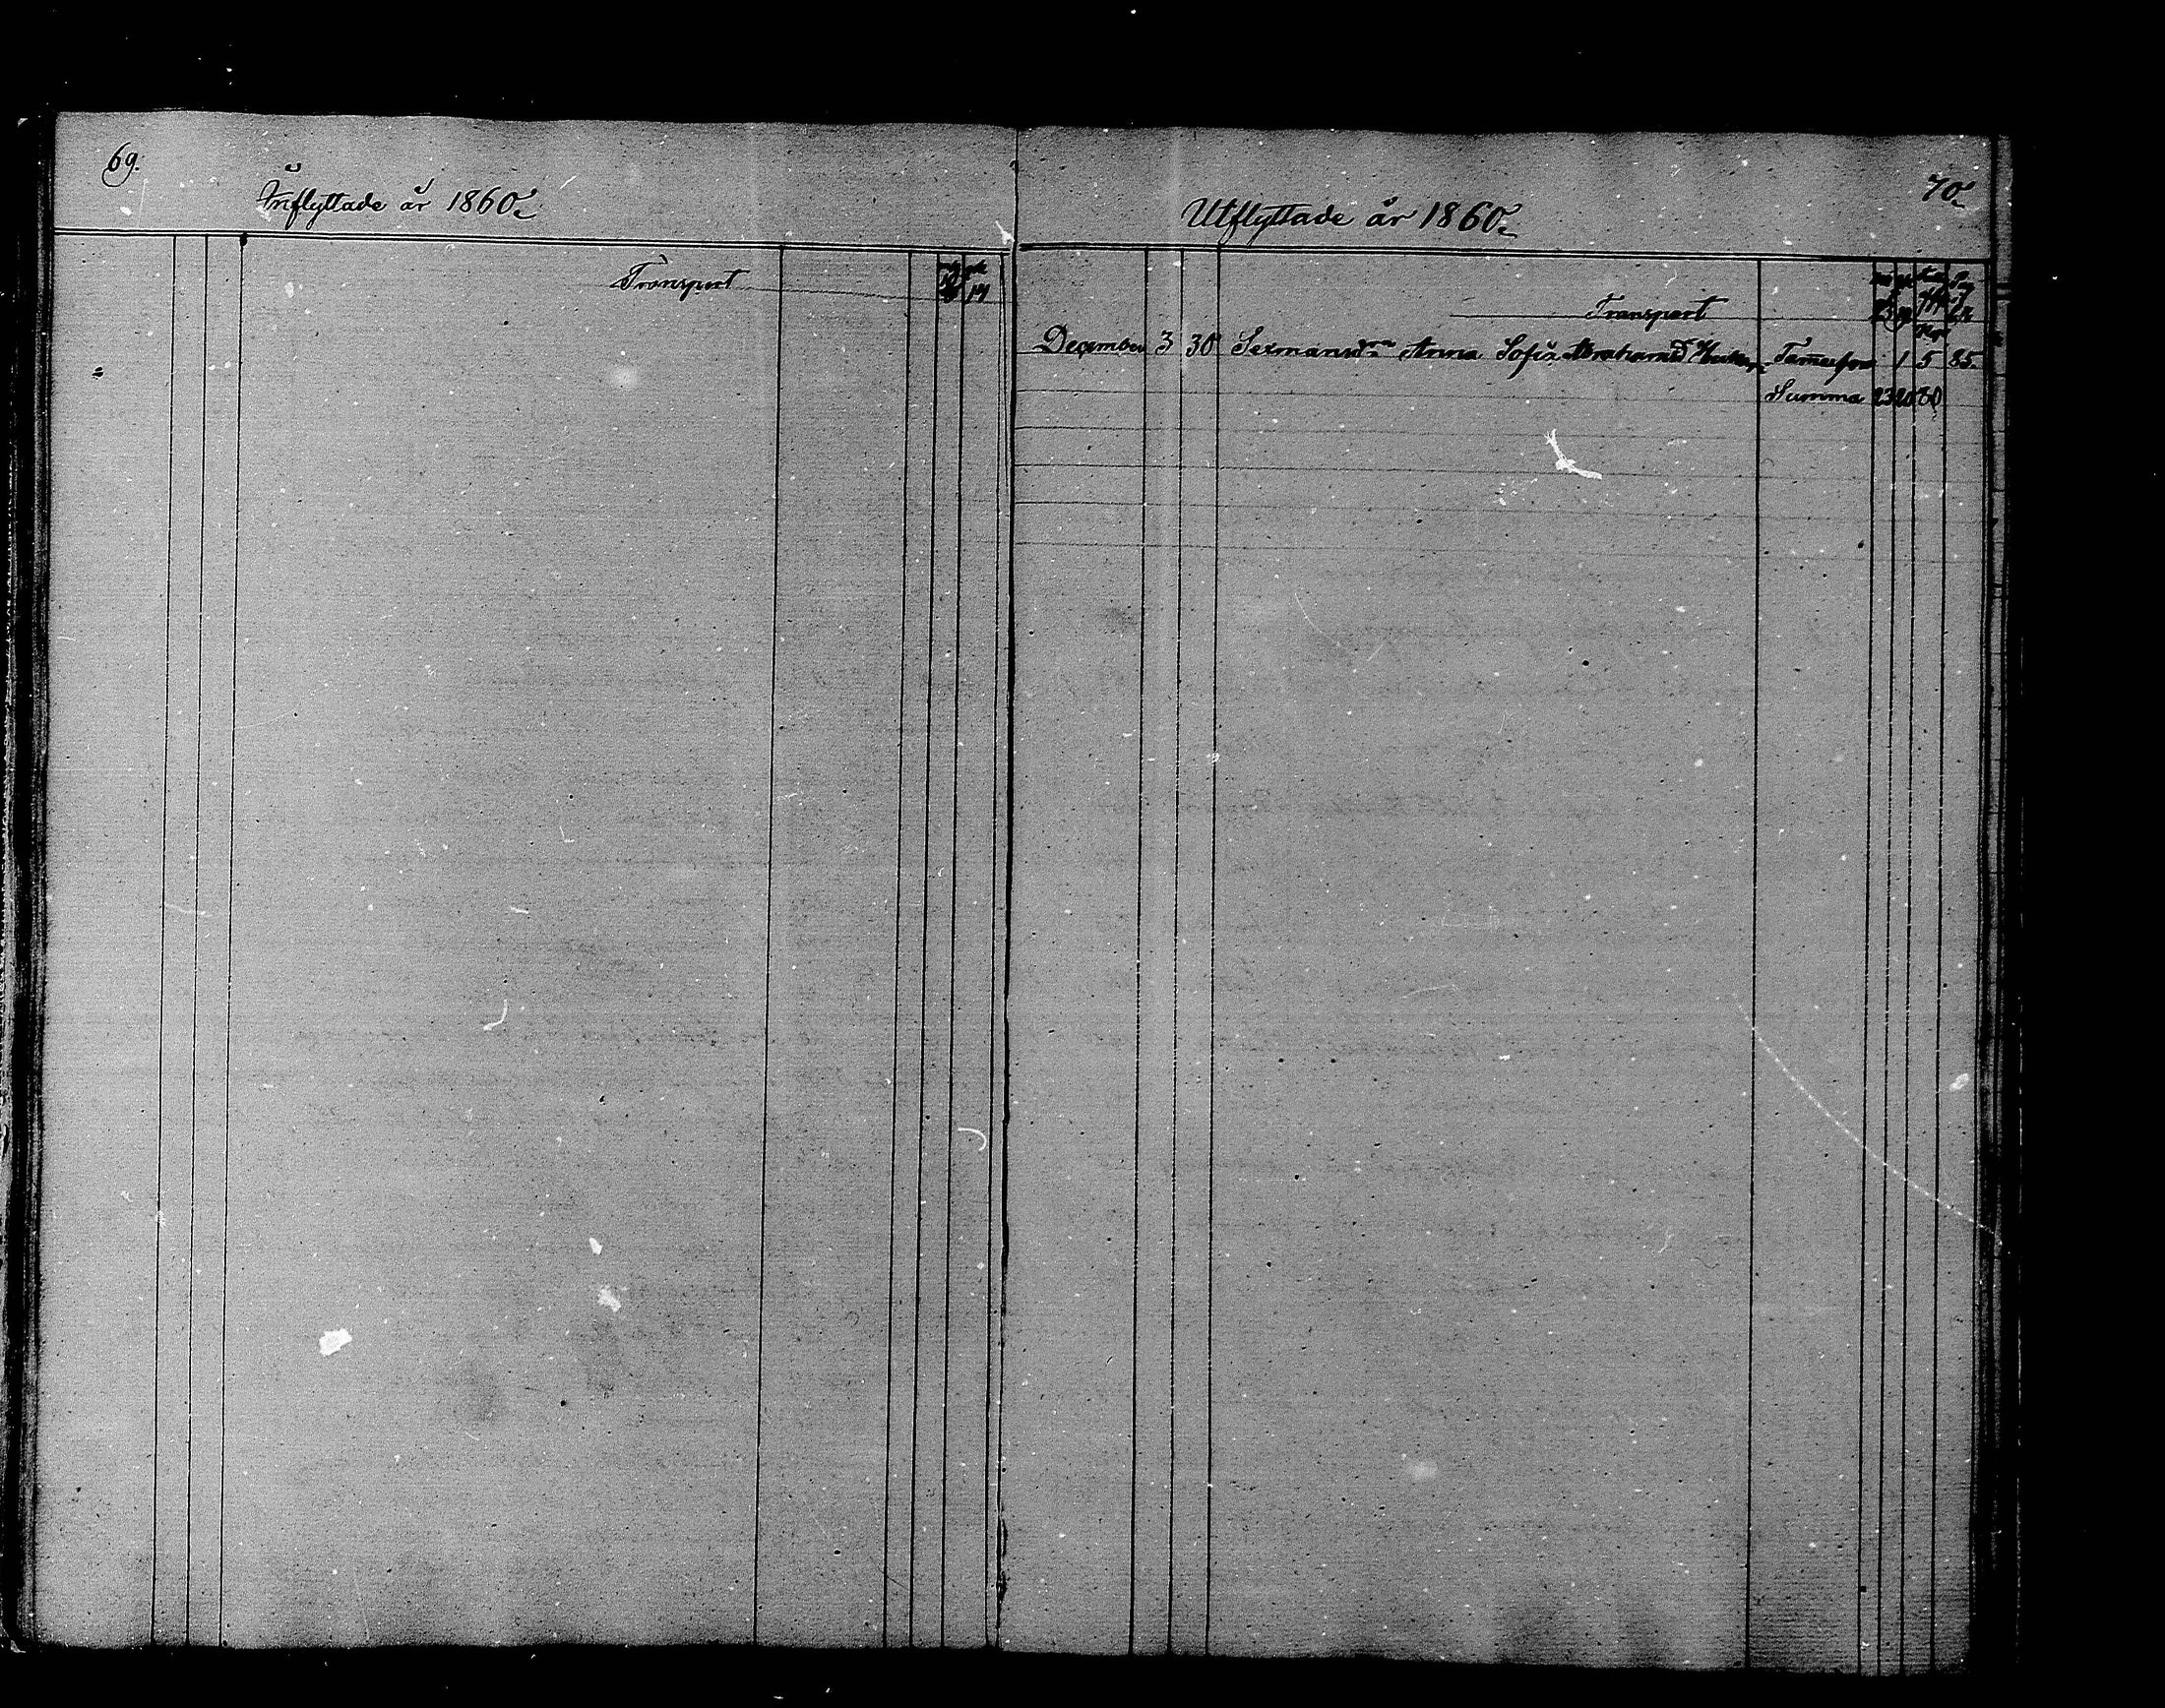 69.
Inflyttade år 1860.
Transport
14
70.
Utflyttade år 1860.
Transport
December 3 30 Sexmansd:n Anna Sofia Abrahamsd:r Tammerfors 1 5 85.
Summa 23 20 80